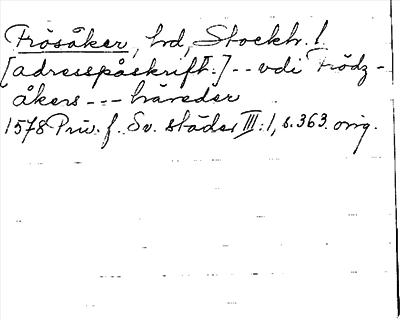 Frösåker, hd, Stockh. l.
[adresspåskrift:] -- vdi Frödz-
åkers --- häreder
1578 Priv. f. Sv. städer III:1, s. 363. orig.